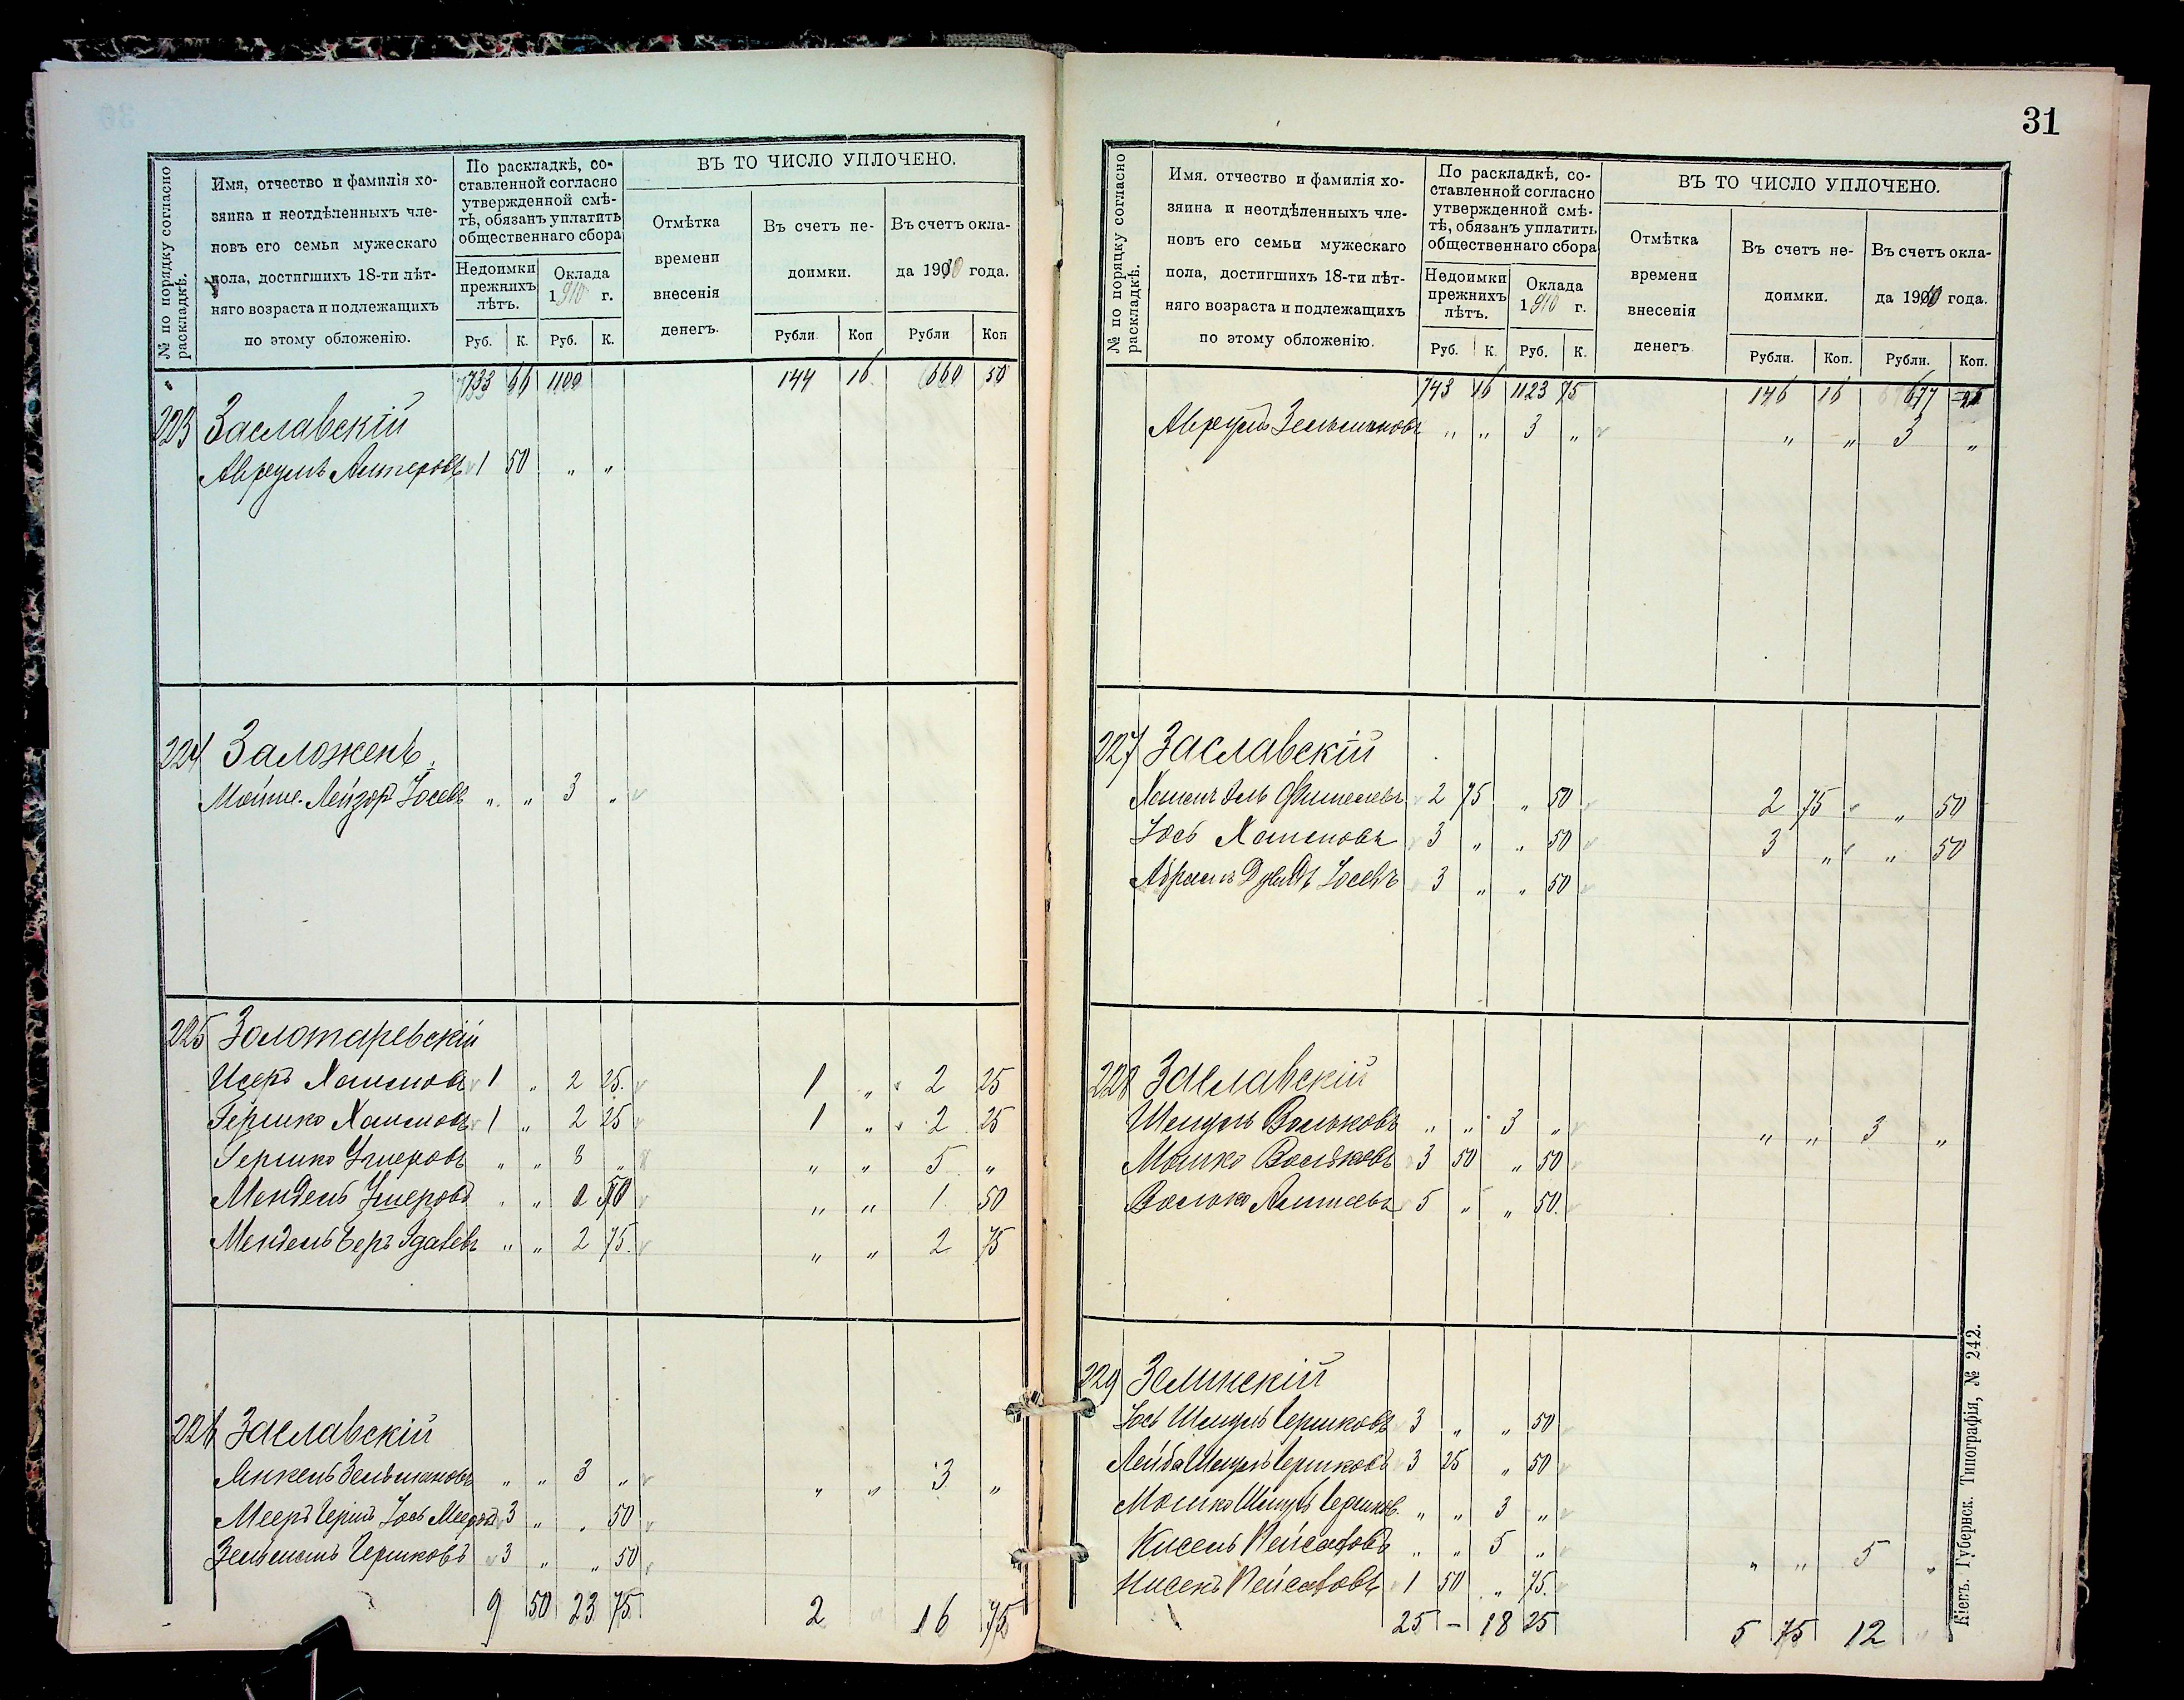 31
№ по порядку согласно раскладкѣ.
Имя, отчество и фамилія хо-
зяина и неотдѣленныхъ чле-
новъ его семьи мужескаго
пола, достигшихъ 18-ти лѣт-
няго возраста и подлежащихъ
по этому обложенію.
По раскладкѣ, со-
ставленной согласно
утвержденной смѣ-
тѣ, обязанъ уплатить
общественнаго сбора
Недоимки
прежнихъ
лѣтъ.
Оклада
1910 г.
Руб. К. Руб. К.
ВЪ ТО ЧИСЛО УПЛОЧЕНО.
Отмѣтка
времени
внесенія
денегъ.
Въ счетъ не-
доимки.
Въ счетъ окла-
да 1910 года.
Рубли Коп Рубли Коп
733 66 1100 144 16 660 50
223 Заславскій
Авремъ Алтеровъ 1 50 „ „
224 Заложенъ
Мойше-Лейзоръ Іосевъ „ „ 3 „
225 Золотаревскій
Ицекъ Хаимовъ 1 „ 2 25 1 „ 2 25
Гершко Хаимовъ 1 „ 2 25 1 „ 2 25
Гершко Умеровъ „ „ 8 „ „ „ 5 „
Мендель Умеровъ „ „ 50 „ „ 1 50
Мендель Беръ „ „ 2 75 „ „ 2 75
226 Заславскій
Янкель Зельмановъ „ „ 3 „ „ „ 3 „
Мееръ Гершъ Іось Мееровъ 3 „ „ 50
Зельманъ Гершковъ 3 „ „ 50
9 50 23 75 2 16 75
№ по порядку согласно раскладкѣ.
Имя, отчество и фамилія хо-
зяина и неотдѣленныхъ чле-
новъ его семьи мужескаго
пола, достигшихъ 18-ти лѣт-
няго возраста и подлежащихъ
по этому обложенію.
По раскладкѣ, со-
ставленной согласно
утвержденной смѣ-
тѣ, обязанъ уплатить
общественнаго сбора
Недоимки
прежнихъ
лѣтъ.
Оклада
1910 г.
Руб. К. Руб. К.
ВЪ ТО ЧИСЛО УПЛОЧЕНО.
Отмѣтка
времени
внесенія
денегъ
Въ счетъ не-
доимки.
Въ счетъ окла-
да 1910 года.
Рубли. Коп. Рубли. Коп.
743 16 1123 75 146 16 677 25
Аврумъ Зельмановъ „ „ 3 „ „ „ 3 „
227 Заславскій
Хаимъ Эль Фишелевъ 2 75 „ 50 2 75 „ 50
Іось Хаимовъ 3 „ „ 50 3 „ „ 50
Абрамъ Дувидъ Іосевъ 3 „ „ 50
228 Заславскій
Шмуль Вольковъ „ „ 3 „ „ „ 3 „
Мошко Вольковъ 3 50 „ 50
Волько 5 „ „ 50
229 Зелинскій
Іось Шмуль Гершковъ 3 „ „ 50
Лейба Шмуль Гершковъ 3 25 „ 50
Мошко Шмуль Гершков. „ „ 3 „
Кисель Пейсаховъ „ „ 5 „ „ „ 5 „
Нисенъ Пейсаховъ 1 50 „ 75
25 - 18 25 5 75 12
Кіевъ. Губернск. Типографія, № 242.